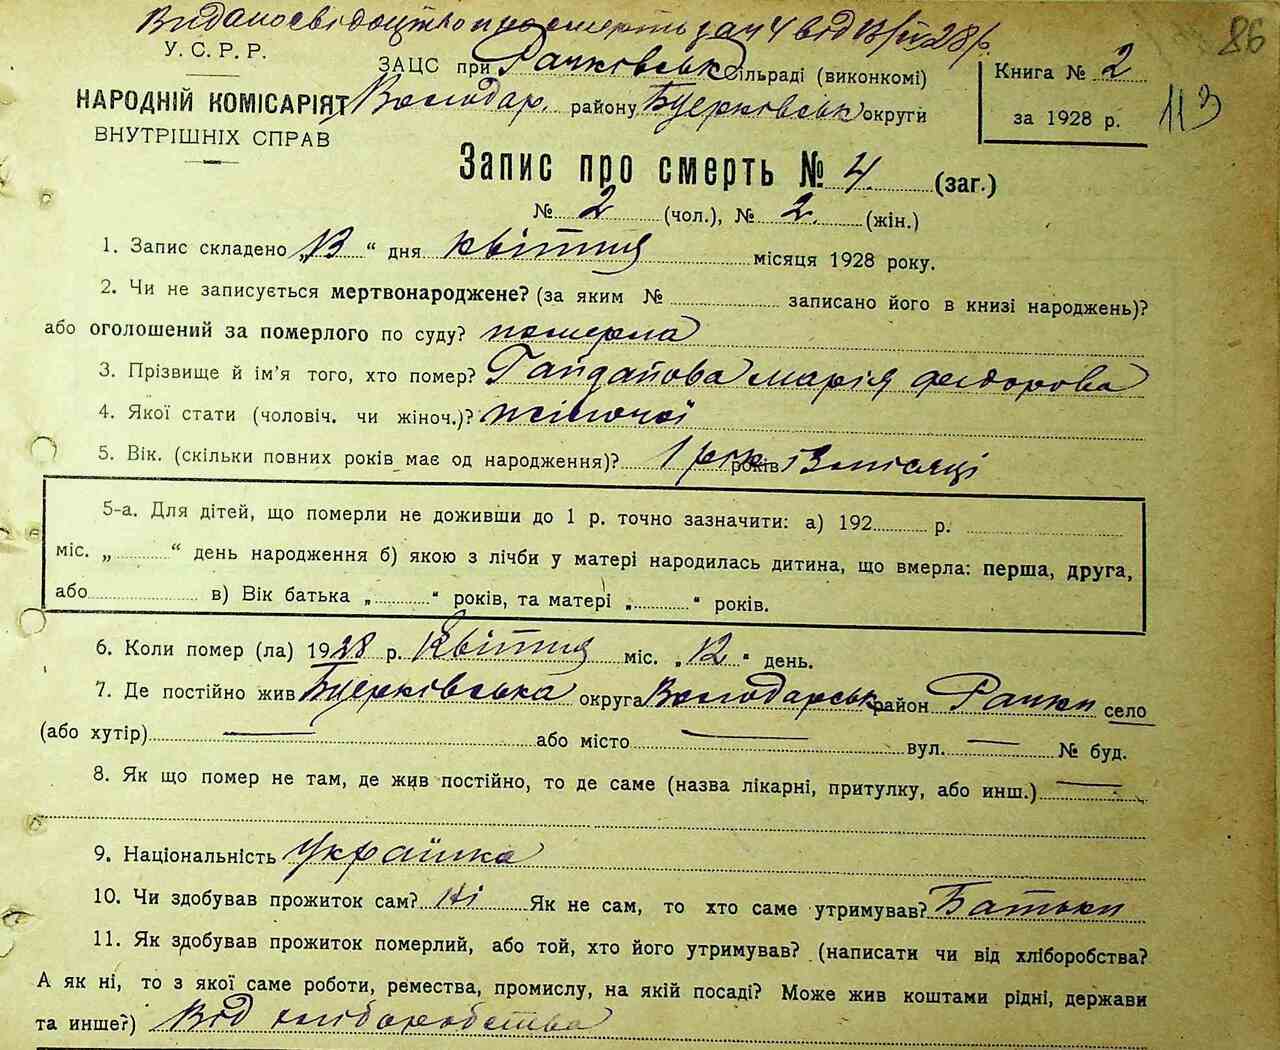 Видано свідоцтво про смерть за ч 4 від 13/IV 28 р.
86
У. С. Р. Р.
НАРОДНІЙ КОМІСАРІЯТ
ВНУТРІШНІХ СПРАВ
ЗАЦС при Рачківськ сільраді (виконкомі)
Володар. району Бцерківськ округи
Книга № 2
за 1928 р.
113
Запис про смерть № 4 (заг.)
№ 2 (чол.), № 2 (жін.)
1. Запис складено „13“ дня квітня місяця 1928 року.
2. Чи не записується мертвонароджене? (за яким № записано його в книзі народжень)?
або оголошений за померлого по суду? померла
3. Прізвище й ім'я того, хто помер? Гайдайова Марія Федорова
4. Якої стати (чоловіч. чи жіноч.)? жіночої
5. Вік. (скільки повних років має од народження)? 1 рік років і 3 місяці
5-а. Для дітей, що померли не доживши до 1 р. точно зазначити: а) 192 р.
міс. „ “ день народження б) якою з лічби у матері народилась дитина, що вмерла: перша, друга,
або в) Вік батька „ “ років, та матері „ “ років.
6. Коли помер (ла) 1928 р. Квітня міс. „12“ день.
7. Де постійно жив Бцерківська округа Володарськ район Рачки село
(або хутір) — або місто — вул. — № буд.
8. Як що помер не там, де жив постійно, то де саме (назва лікарні, притулку, або инш.) —
9. Національність Українка
10. Чи здобував прожиток сам? Ні Як не сам, то хто саме утримував? Батьки
11. Як здобував прожиток померлий, або той, хто його утримував? (написати чи від хліборобства?
А як ні, то з якої саме роботи, ремества, промислу, на якій посаді? Може жив коштами рідні, держави
та инше?) Від хліборобства